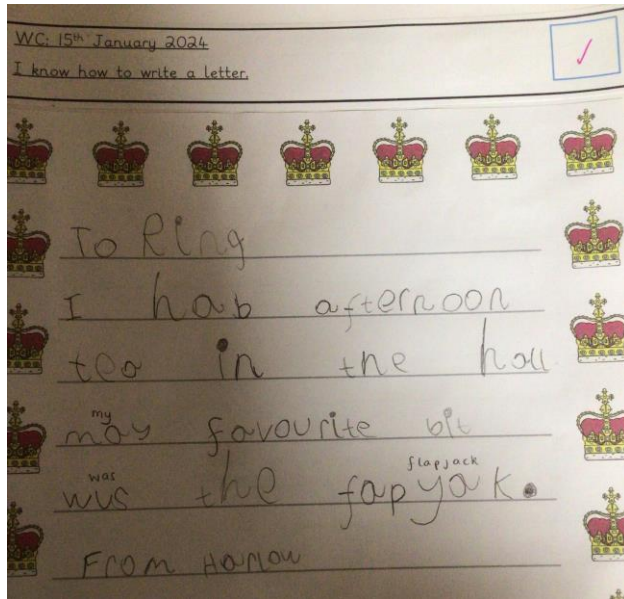 WC: 15th January 2024
I know how to write a letter.
To King
I hab afternoon
tea in the hall
my
may favourite bit
was flapjack
wus the fapyak.
From Harlow